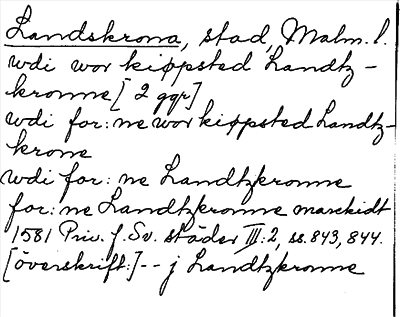 Landskrona, stad, Malm. l.
wdi wor kiøpsted Landtz-
kronne [2 ggr]
wdi for: ne wor kiøpsted Landtz-
krone
wdi for: ne Landtzkronne
for: ne Landtzkronne marckidt
1581 Priv. f. Sv. städer III:2, ss. 843, 844.
[överskrift:] -- j Landtzkronne